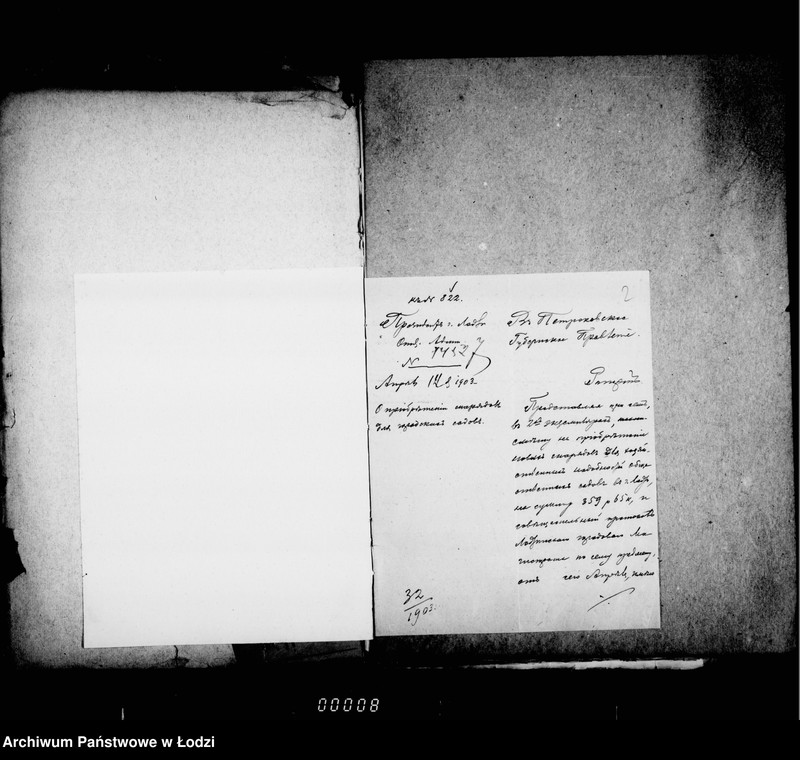 къ № 822.
2
Президентъ г. Лодзи
Отд. Админ.
№ 7437
Апрѣля 14 д. 1903 г.
О пріобрѣтеніи снарядовъ
для городскихъ садовъ.
32
1903.
Въ Петроковское
Губернское Правленіе.
Рапортъ
Представляя при семъ,
въ 2хъ экземплярахъ,
смѣту на пріобрѣтеніе
новыхъ снарядовъ для хозяй-
ственныхъ надобностей обще-
ственныхъ садовъ въ г. Лодзи,
на сумму 859 р 65 к, и
совѣщательный протоколъ
Лодзинскаго городоваго Ма-
гистрата по сему предмету,
отъ сего Апрѣля, имѣю
00008
Archiwum Państwowe w Łodzi